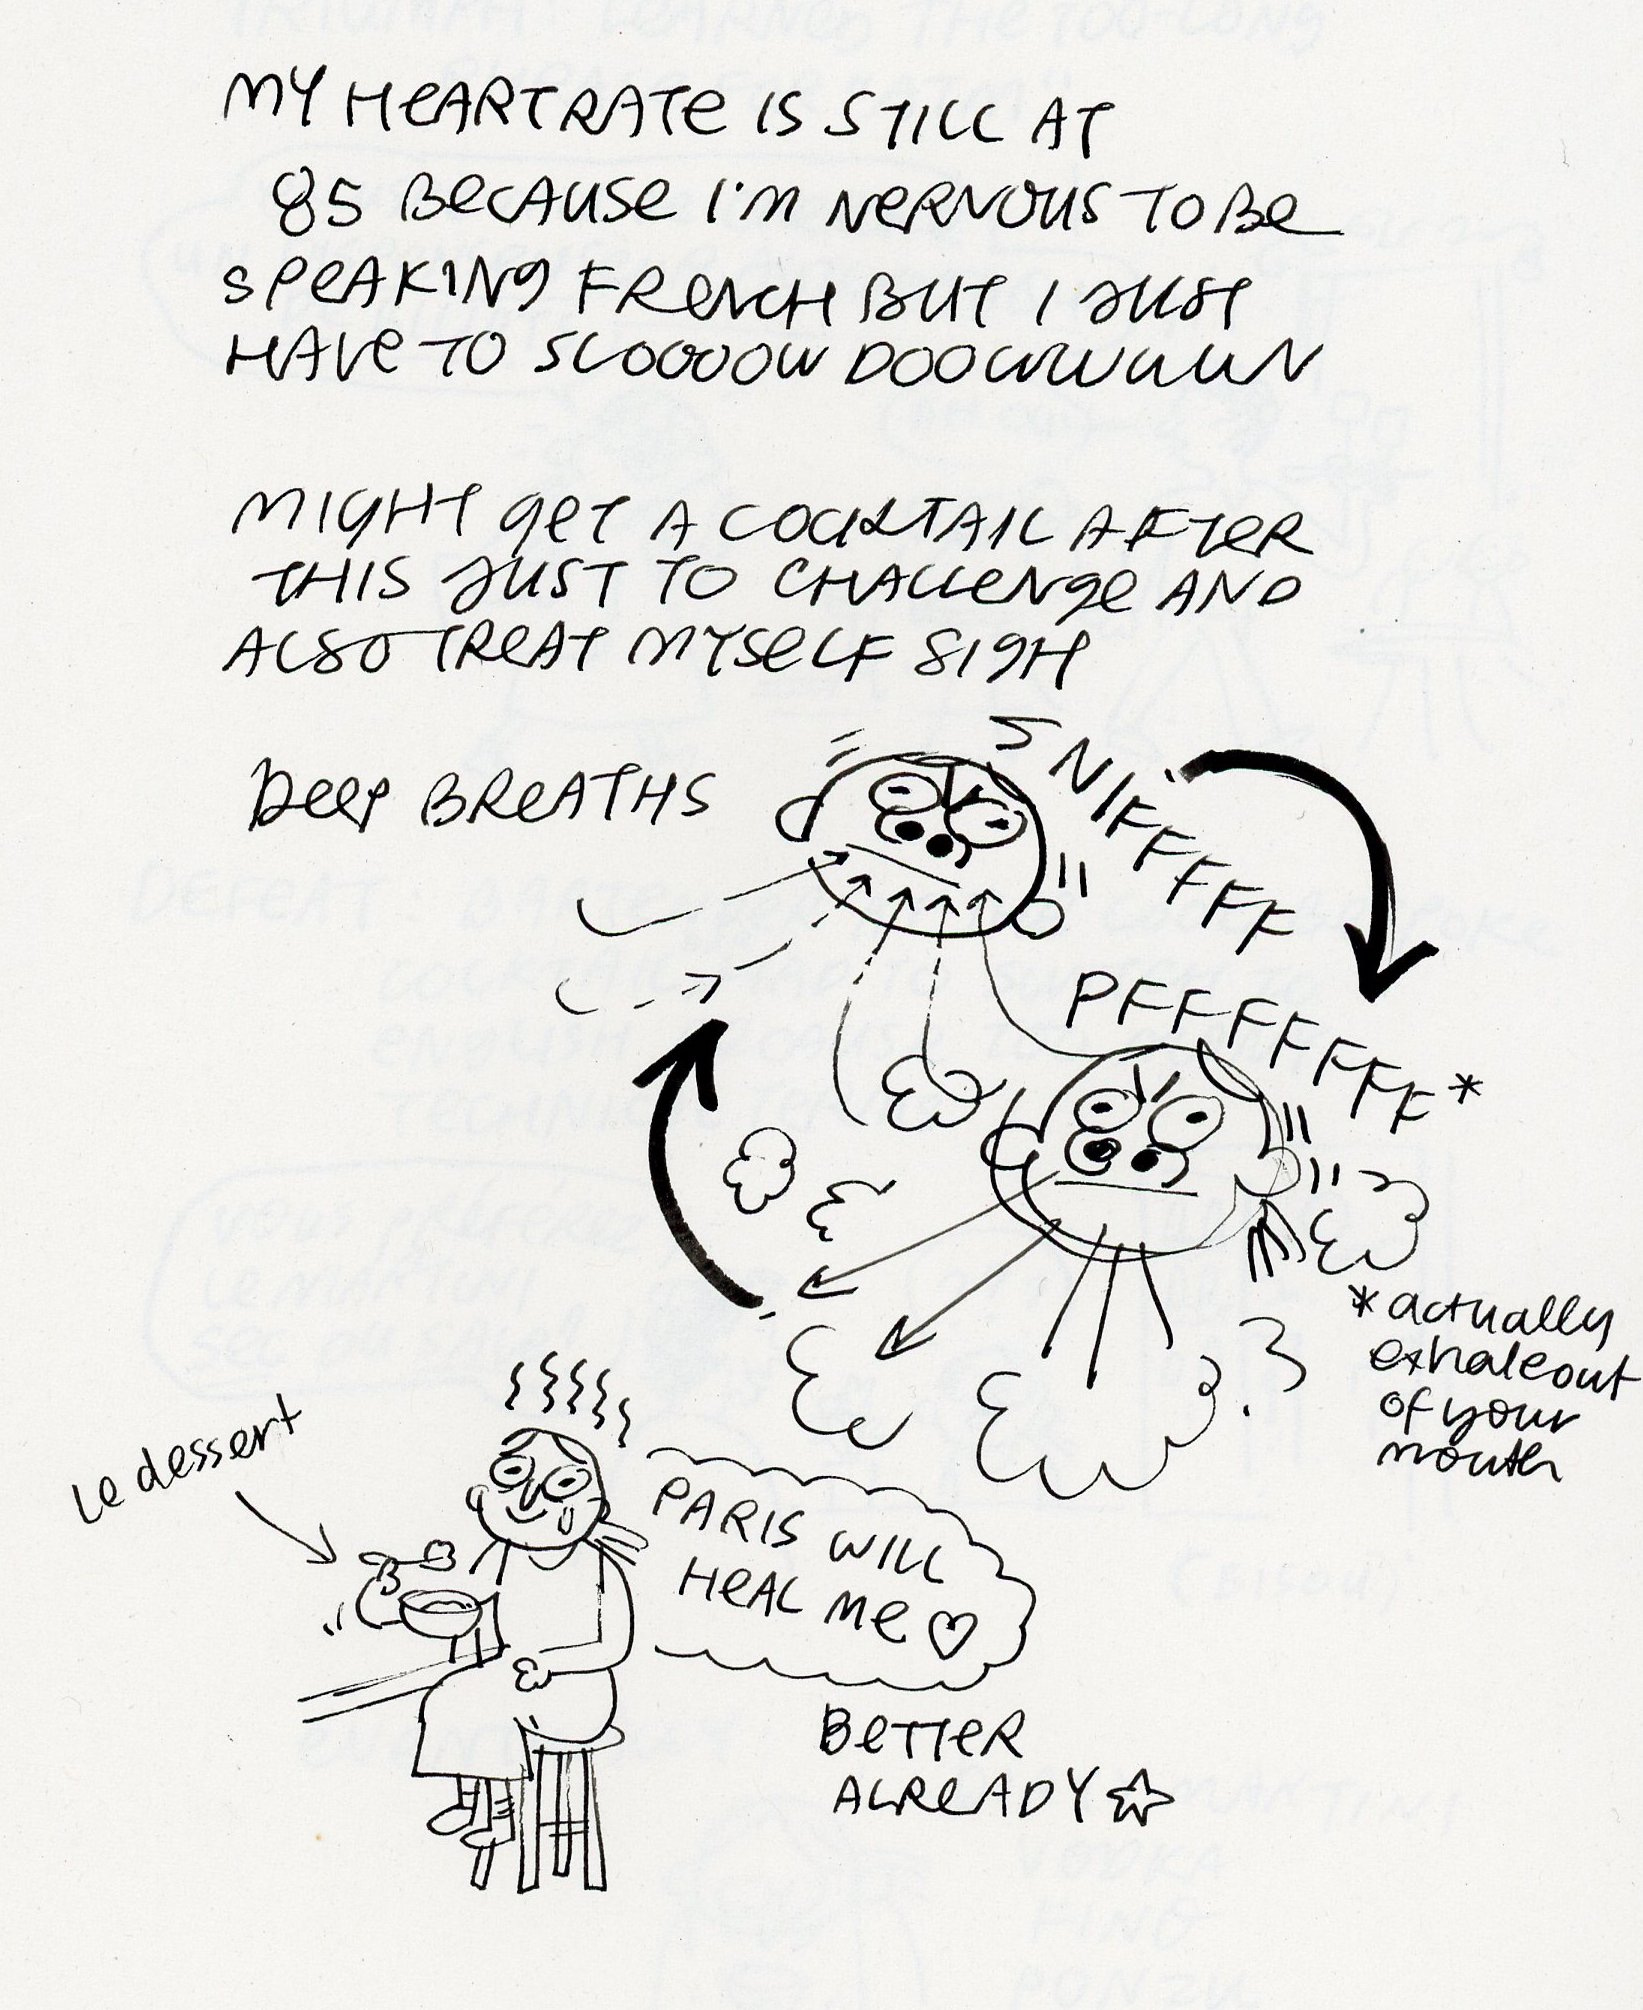 MY HEARTRATE IS STILL AT
85 BECAUSE I'M NERVOUS TO BE
SPEAKING FRENCH BUT I JUST
HAVE TO SLOOOOW DOOWWWWN
MIGHT GET A COCKTAIL AFTER
THIS JUST TO CHALLENGE AND
ALSO TREAT MYSELF SIGH
DEEP BREATHS
SNIFFFFFF
PFFFFFFFF*
*actually
exhale out
of your
mouth
Le dessert
PARIS WILL
HEAL ME ♡
BETTER
ALREADY ☆